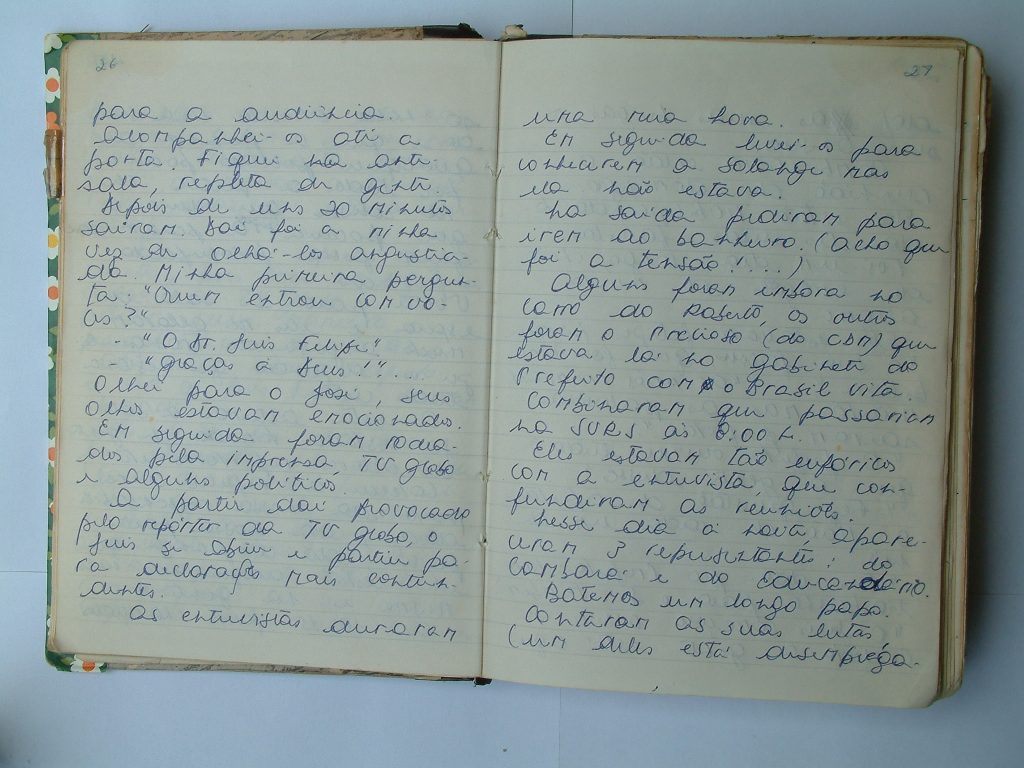 26
para a audiência.
Acompanhei-os até a
porta. Fiquei na ante
sala, repleta de gente.
Depois de uns 20 minutos
saíram. Daí foi a minha
vez de olhá-los angustia-
da. Minha primeira pergun-
ta: "Quem entrou com vo-
cês?"
- "O Dr. Luis Felipe."
- "Graças a Deus!"...
Olhei para o José, seus
olhos estavam emocionados.
Em seguida foram rodea-
dos pela imprensa, TV Globo
e alguns políticos.
A partir daí provocado
pelo repórter da TV Globo, o
Luis se abriu e partiu pa-
ra declarações mais contun-
dentes.
As entrevistas duraram
27
uma meia hora.
Em seguida levei-os para
conhecerem a Solange mas
ela não estava.
Na saída pediram para
irem ao banheiro. (Acho que
foi a tensão!...)
Alguns foram embora no
carro do Roberto, os outros
foram o Precioso (do CDM) que
estava lá no gabinete do
Prefeito com o Brasil Vita.
Combinaram que passariam
na SURS às 8:00 h.
Eles estavam tão eufóricos
com a entrevista, que con-
fundiram as reuniões.
Nesse dia à noite, apare-
ceram 3 representantes: do
Cambará e do Educandário.
Batemos um longo papo.
Contaram as suas lutas
(um deles está desemprega-